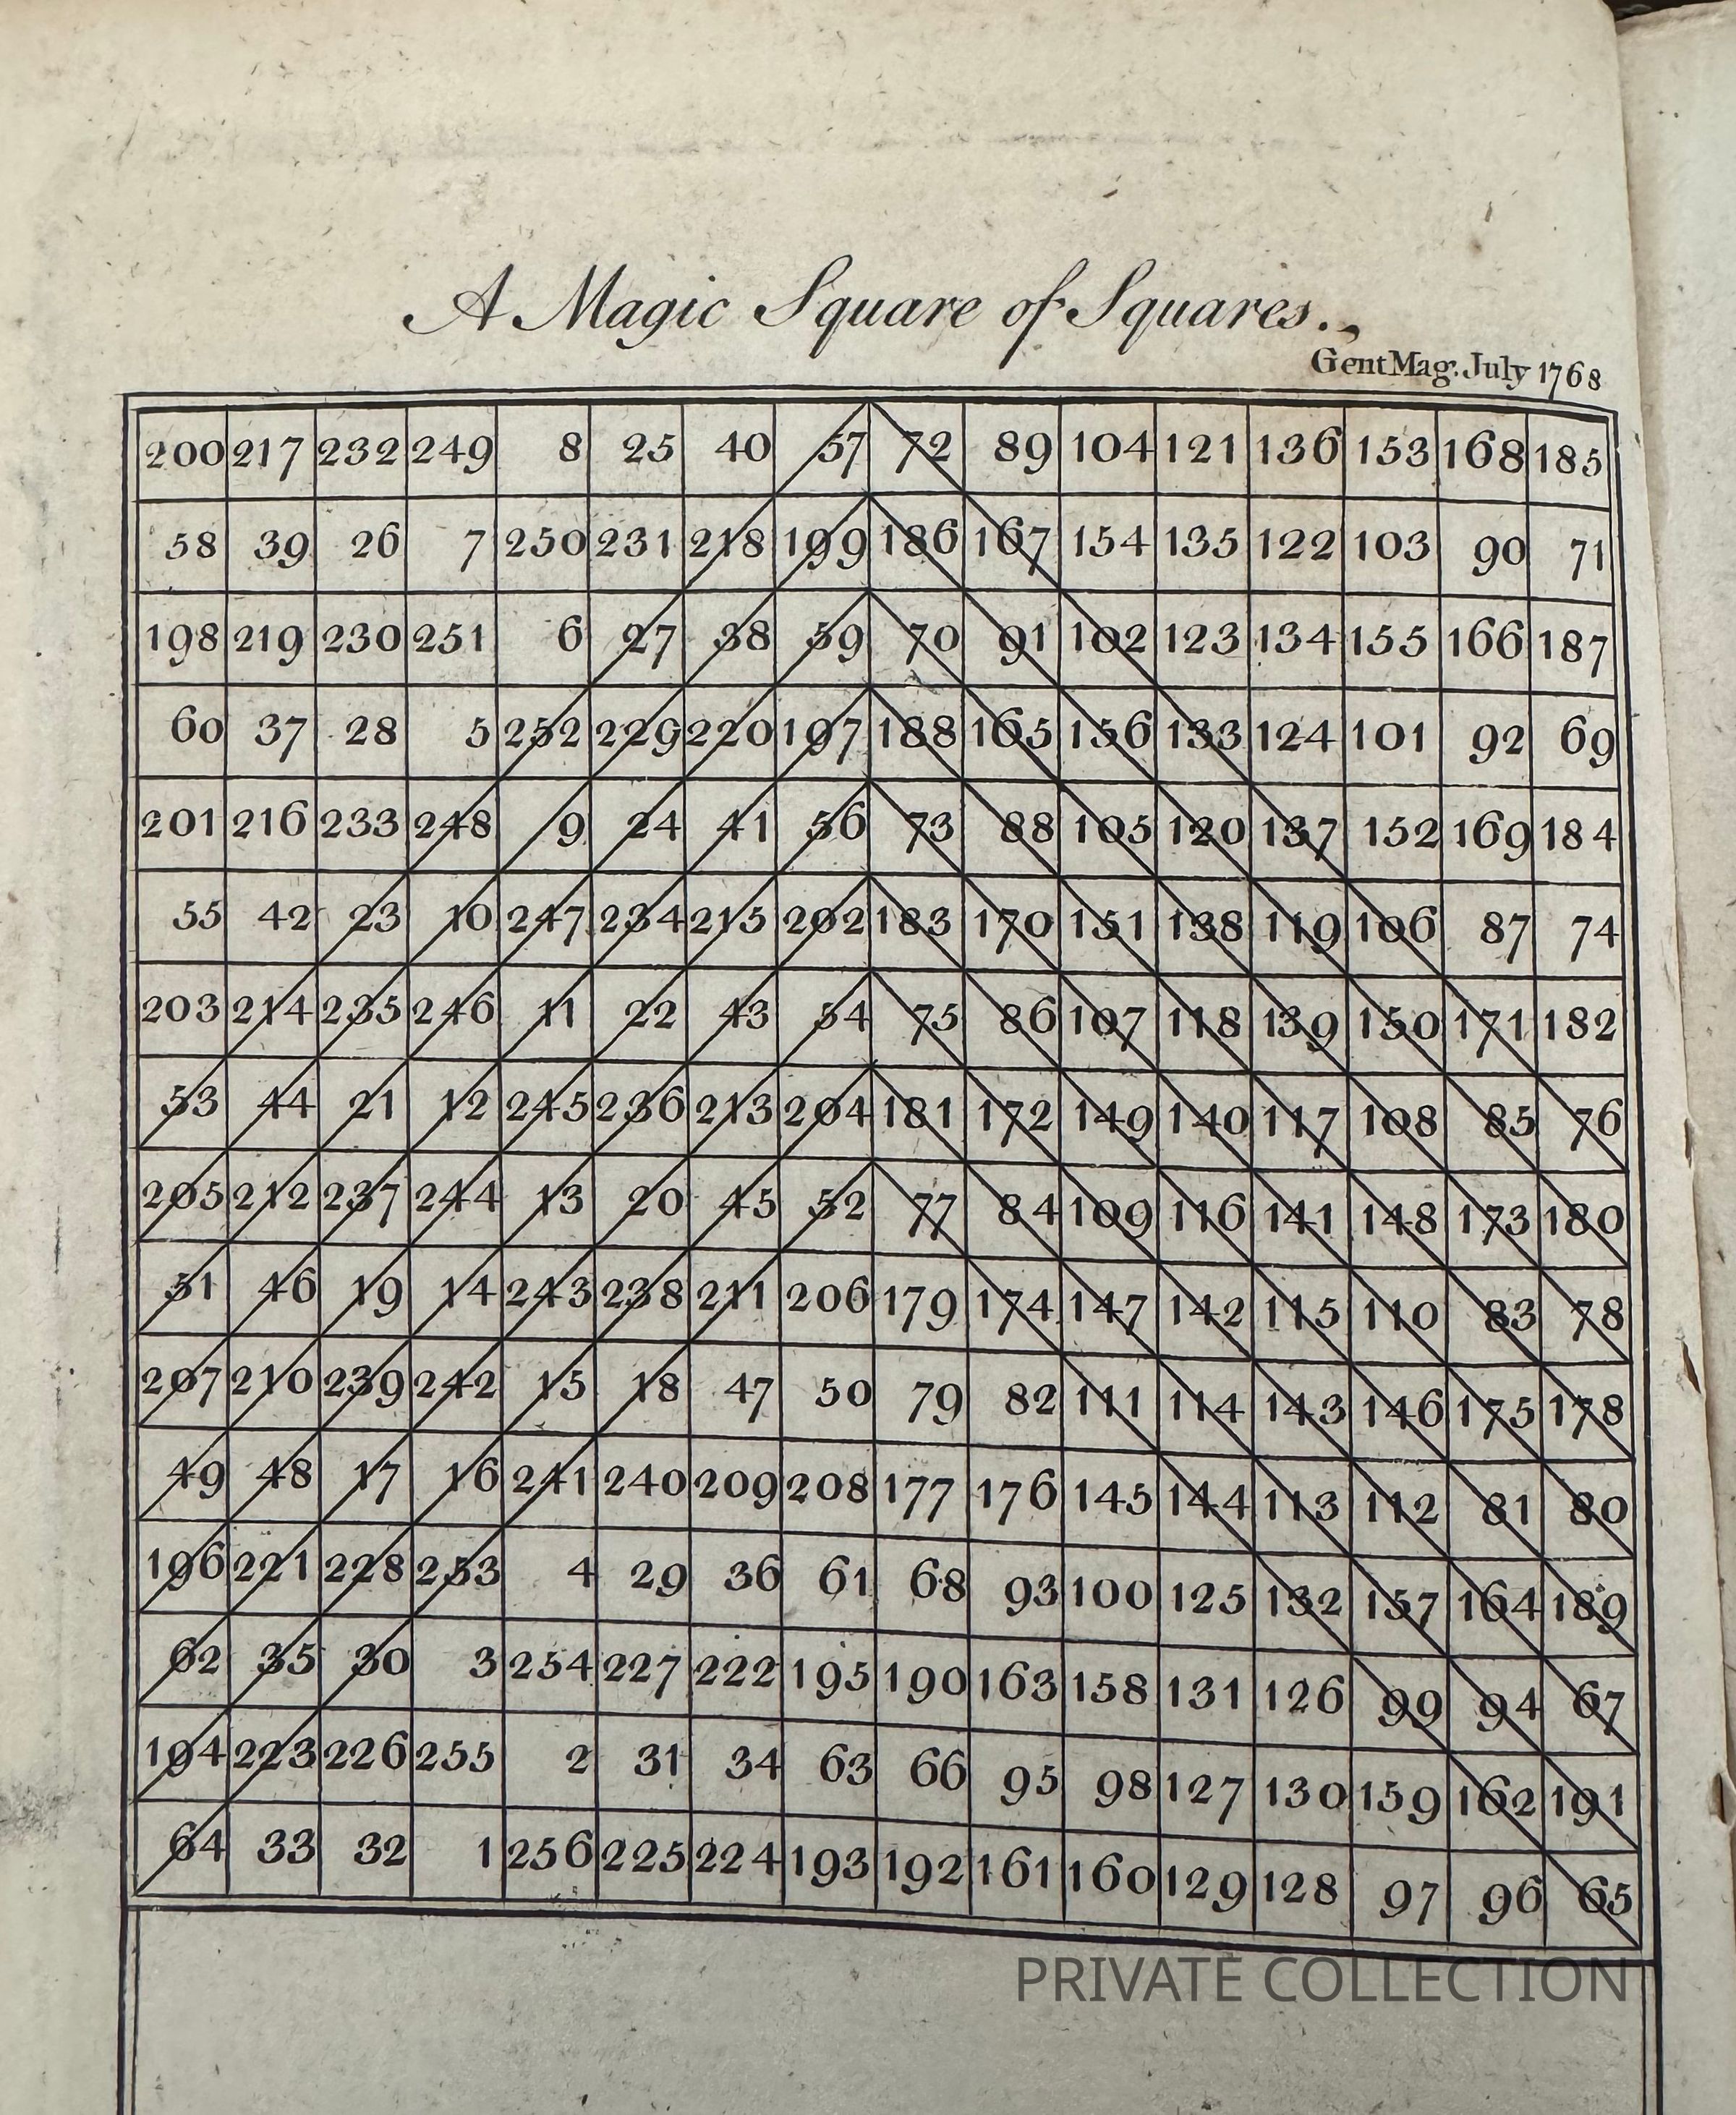 A Magic Square of Squares.
Gent Mag. July 1768
200 217 232 249 8 25 40 57 72 89 104 121 136 153 168 185
58 39 26 7 250 231 218 199 186 167 154 135 122 103 90 71
198 219 230 251 6 27 38 59 70 91 102 123 134 155 166 187
60 37 28 5 252 229 220 197 188 165 156 133 124 101 92 69
201 216 233 248 9 24 41 56 73 88 105 120 137 152 169 184
55 42 23 10 247 234 215 202 183 170 151 138 119 106 87 74
203 214 235 246 11 22 43 54 75 86 107 118 139 150 171 182
53 44 21 12 245 236 213 204 181 172 149 140 117 108 85 76
205 212 237 244 13 20 45 52 77 84 109 116 141 148 173 180
51 46 19 14 243 238 211 206 179 174 147 142 115 110 83 78
207 210 239 242 15 18 47 50 79 82 111 114 143 146 175 178
49 48 17 16 241 240 209 208 177 176 145 144 113 112 81 80
196 221 228 253 4 29 36 61 68 93 100 125 132 157 164 189
62 35 30 3 254 227 222 195 190 163 158 131 126 99 94 67
194 223 226 255 2 31 34 63 66 95 98 127 130 159 162 191
64 33 32 1 256 225 224 193 192 161 160 129 128 97 96 65
PRIVATE COLLECTION